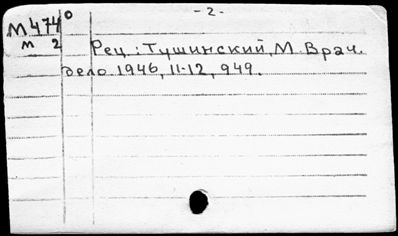 - 2 -
М474⁰
м 2
Рец.: Тушинский, М. Врач.
дело 1946, 11-12, 949.